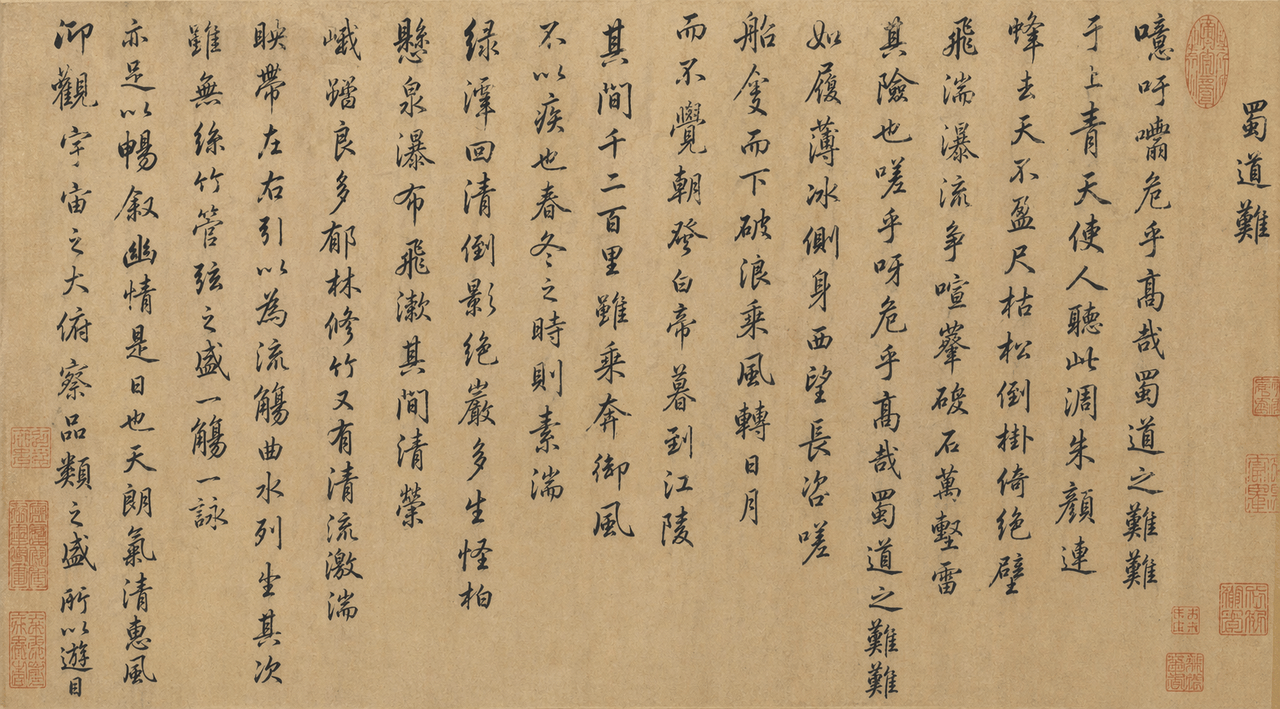 蜀道難
噫吁危乎高哉蜀道之難難
于上青天使人聽此凋朱顏連
蜂去天不盈尺枯松倒掛倚絕壁
飛湍瀑流爭喧石萬壑雷
其險也嗟乎呀危乎高哉蜀道之難難
如履薄冰側身西望長咨嗟
船而下破浪乘風轉日月
而不覺朝發白帝暮到江陵
其間千二百里雖乘奔御風
不以疾也春冬之時則素湍
绿潭回清倒影絕巖多生怪柏
懸泉瀑布飛漱其間清榮
峨良多郁林修竹又有清流激湍
映帶左右引以為流觴曲水列坐其次
雖無絲竹管弦之盛一觴一詠
亦足以暢敘幽情是日也天朗氣清惠風
仰觀宇宙之大俯察品類之盛所以遊目